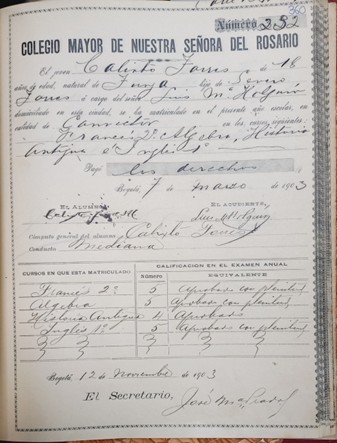 Número 232
COLEGIO MAYOR DE NUESTRA SEÑORA DEL ROSARIO
El joven Calisto Torres de 18
años de edad, natural de Tunja hijo de Severo
Torres á cargo del señor Luis Mª Holguín
domiciliado en esta ciudad, se ha matriculado en el presente año escolar, en
calidad de Convictor en los cursos siguientes:
Francés 2º Algebra, Historia
Antigua é Inglés 1º
Pagó los derechos
Bogotá, 7 de marzo de 1903
EL ALUMNO, EL ACUDIENTE,
Calisto Torres Luis Mª Holguín
Cómputo general del alumno Calisto Torres
Conducta mediana
CURSOS EN QUE ESTÁ MATRICULADO CALIFICACIÓN EN EL EXAMEN ANUAL
Número EQUIVALENTE
Francés 2º 5 Aprobado con plenitud
Algebra 5 Aprobado con plenitud
Historia Antigua 4 Aprobado
Inglés 1º 5 Aprobado con plenitud
Bogotá, 12 de Noviembre de 1903
El Secretario,
José Mª